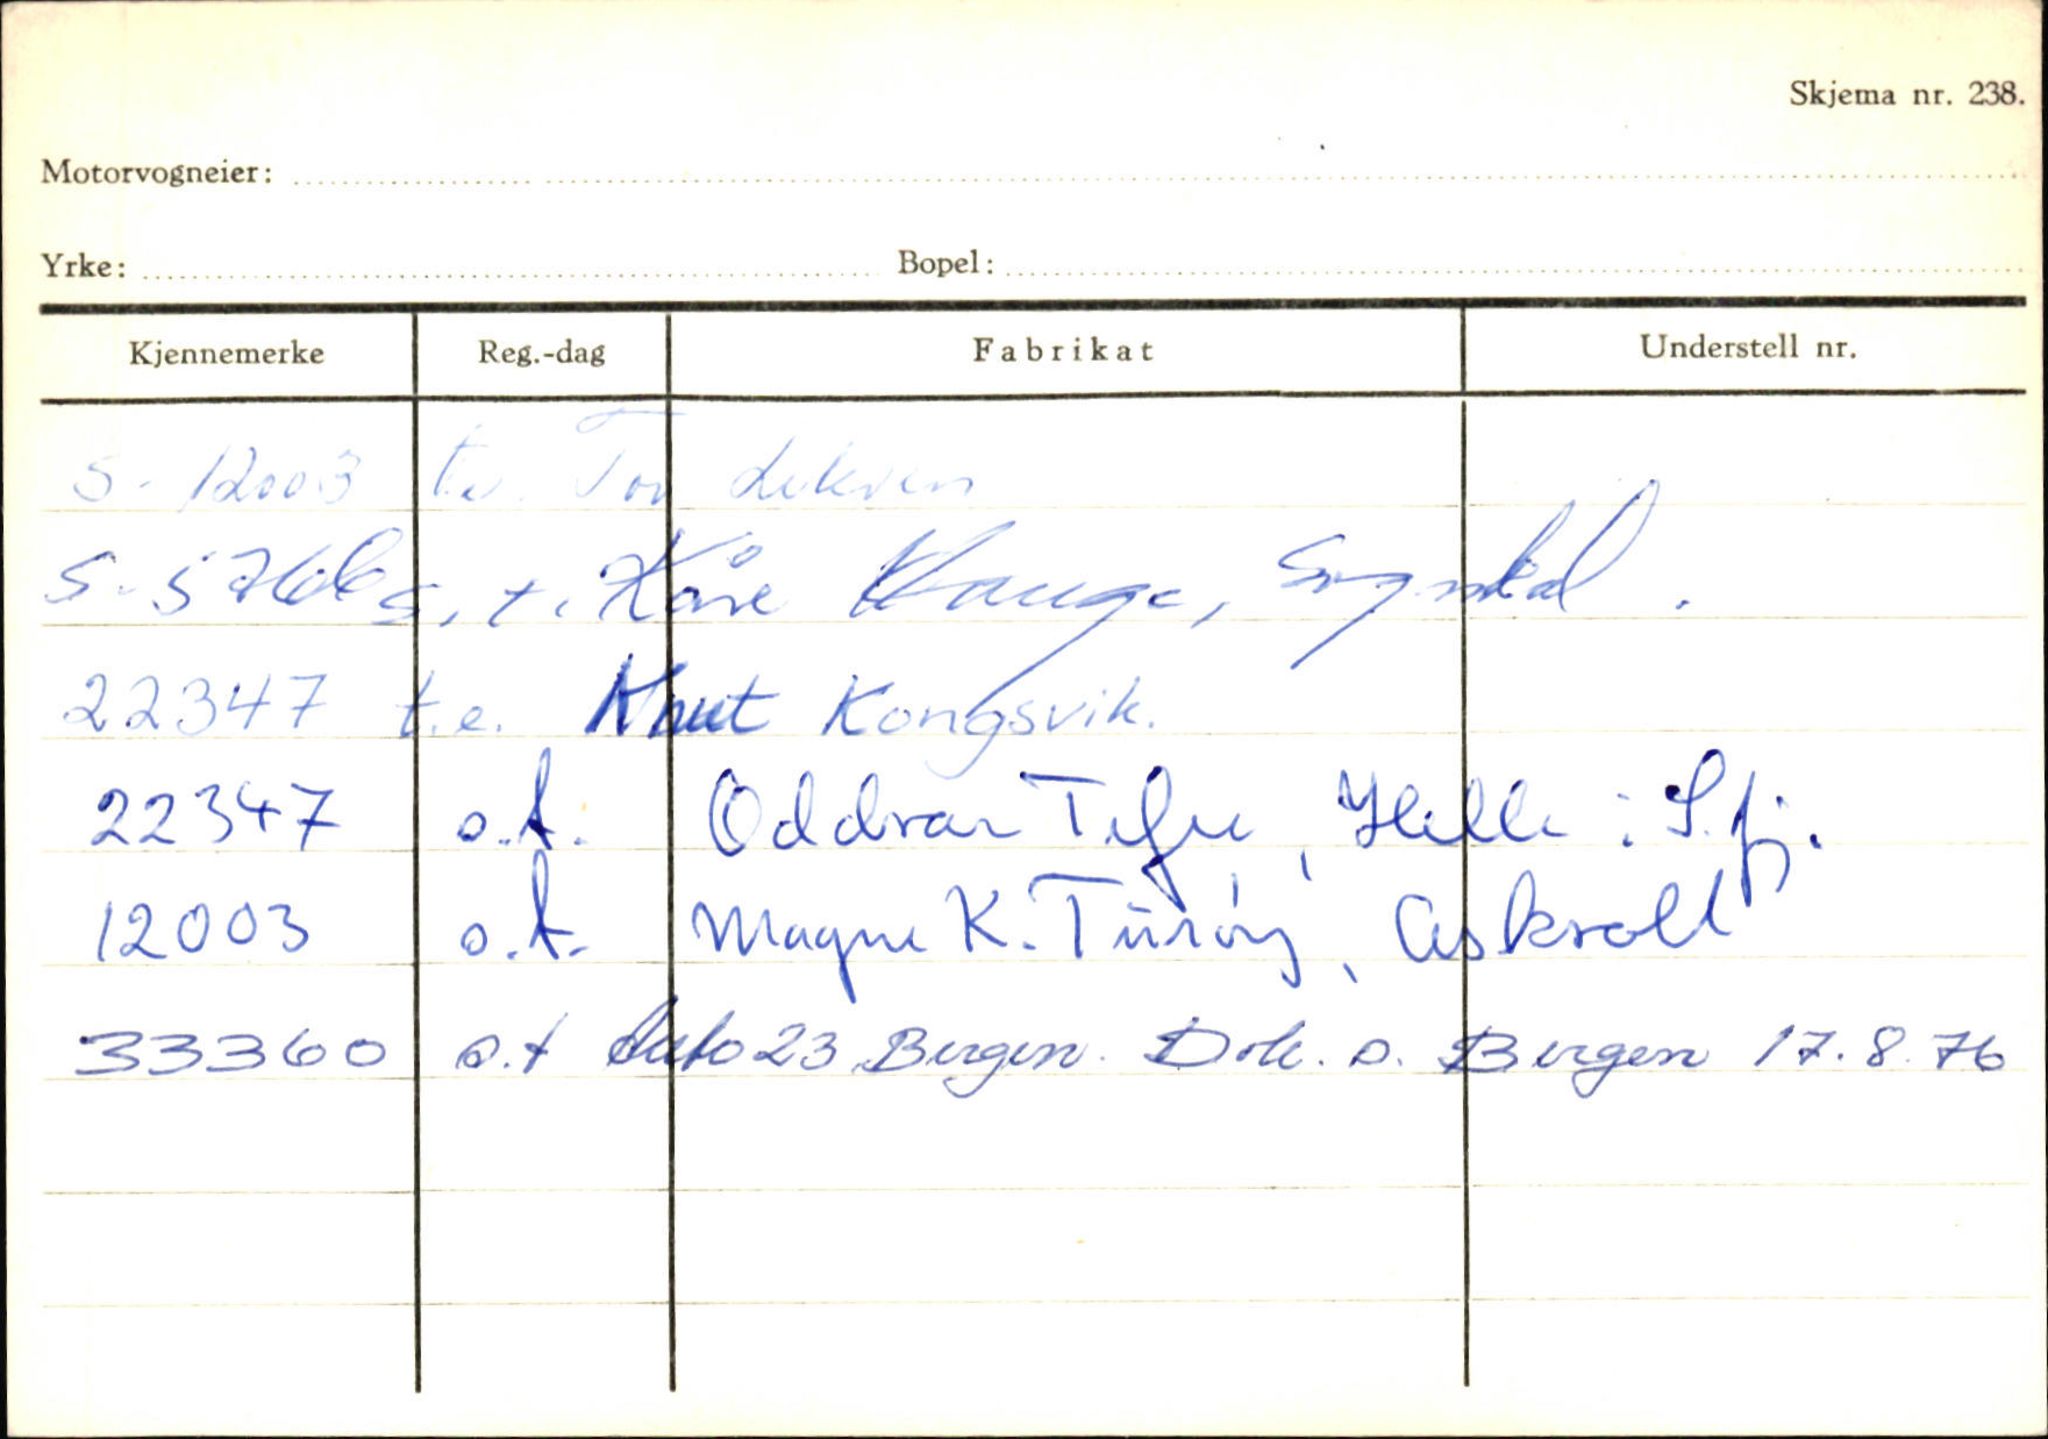 Skjema nr. 238.
Motorvogneier:
Yrke: Bopel:
Kjennemerke Reg.-dag Fabrikat Understell nr.
S-12003 t.e. Tor Lekven
S-5766 s.t. Kåre Hauge, Sogndal.
22347 t.e. Knut Kongsvik.
22347 o.t. Oddvar Tefre, Helle i S.fj.
12003 o.t. Magne K. Turøy, Askvoll
33360 o.t Auto 23 Bergen. Dok. o. Bergen 17.8.76